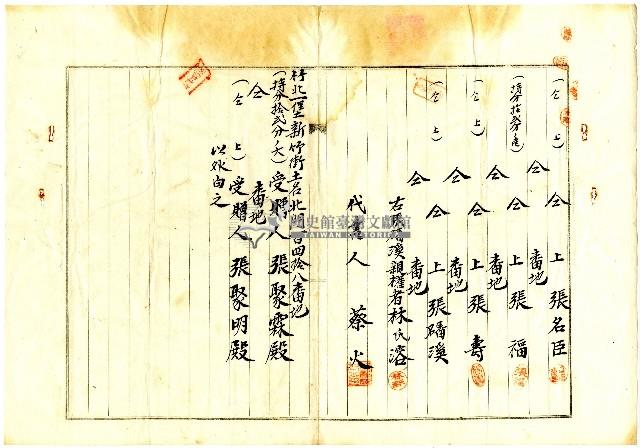 (仝 上)
仝 仝 上 張名臣
(持分拾弍分ノ壱)
仝 番地
仝 上 張 福
(仝 上)
仝 番地
仝 上 張 壽
(仝 上)
仝 番地
仝 上 張磻溪
番地
右張磻溪親權者林氏溶
代書人 蔡火
竹北一堡新竹街土名北門百四拾八番地
(持分拾弍分ノ六) 受贈人 張聚霖殿
仝 番地
(仝 上) 受贈人 張聚明殿
以外白之
國史館臺灣文獻館
TAIWAN HISTORICA